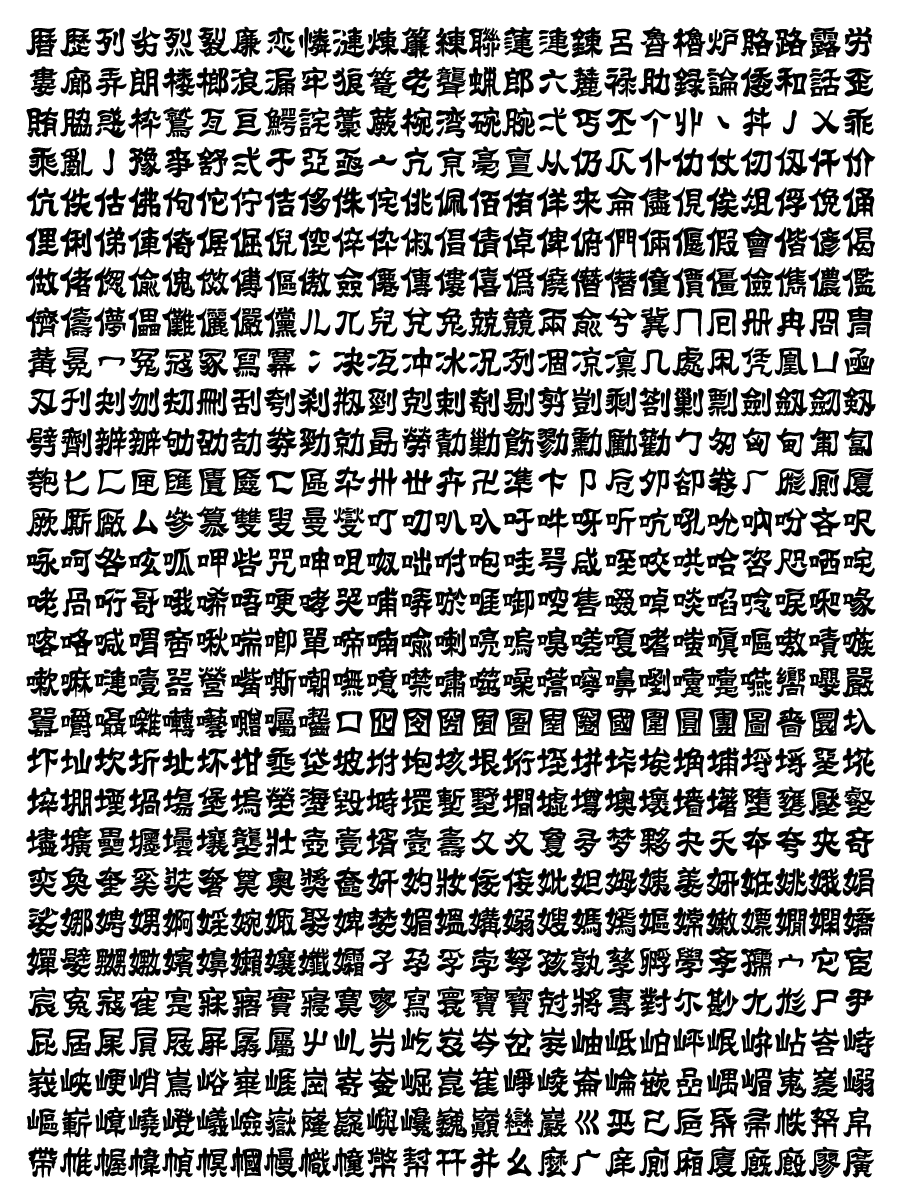 暦歴列劣烈裂廉恋憐漣煉簾練聯蓮連錬呂魯櫓炉賂路露労
婁廊弄朗楼榔浪漏牢狼篭老聾蝋郎六麓禄肋録論倭和話歪
賄脇惑枠鷲亙亘鰐詫藁蕨椀湾碗腕弌丐丕个丱丶丼丿乂乖
乘亂亅豫亊舒弍于亞亟亠亢亰亳亶从仍仄仆仂仗仞仭仟价
伉佚估佛佝佗佇佶侈侏侘佻佩佰侑佯來侖儘俔俟俎俘俛俑
俚俐俤俥倚倨倔倪倥倅伜俶倡倩倬俾俯們倆偃假會偕偐偈
做偖偬偸傀傚傅傴傲僉僊傳僂僖僞僥僭僣僮價僵儉儁儂儖
儕儔儚儡儺儷儼儻儿兀兒兌兔兢竸兩兪兮冀冂囘册冉冏冑
冓冕冖冤冦冢冩冪冫决冱冲冰况冽凅凉凛几處凩凭凰凵凾
刄刋刔刎刧刪刮刳刹剏剄剋剌剞剔剪剴剩剳剿剽劍劔劒剱
劈劑辨辧劬劭劼劵勁勍勗勞勣勦飭勠勳勵勸勹匆匈甸匍匐
匏匕匚匣匯匱匳匸區卆卅丗卉卍凖卞卩卮夘卻卷厂厖厠厦
厥厮厰厶參簒雙叟曼燮叮叨叭叺吁吽呀听吭吼吮吶吩吝呎
咏呵咎呟呱呷呰咒呻咀呶咄咐咆哇咢咸咥咬哄哈咨咫哂咤
咾咼哘哥哦唏唔哽哮哭哺哢唹啀啣啌售啜啅啖啗唸唳啝喙
喀咯喊喟啻啾喘喞單啼喃喩喇喨嗚嗅嗟嗄嗜嗤嗔嘔嗷嘖嗾
嗽嘛嗹噎噐營嘴嘶嘲嘸噫噤嘯噬噪嚆嚀嚊嚠嚔嚏嚥嚮嚶嚴
囂嚼囁囃囀囈囎囑囓囗囮囹圀囿圄圉圈國圍圓團圖嗇圜圦
圷圸坎圻址坏坩埀垈坡坿垉垓垠垳垤垪垰埃埆埔埒埓堊埖
埣堋堙堝塲堡塢塋塰毀塒堽塹墅墹墟墫墺壞墻墸墮壅壓壑
壗壙壘壥壜壤壟壯壺壹壻壼壽夂夊夐夛梦夥夬夭夲夸夾竒
奕奐奎奚奘奢奠奧奬奩奸妁妝佞侫妣妲姆姨姜妍姙姚娥娟
娑娜娉娚婀婬婉娵娶婢婪媚媼媾嫋嫂媽嫣嫗嫦嫩嫖嫺嫻嬌
嬋嬖嬲嫐嬪嬶嬾孃孅孀孑孕孚孛孥孩孰孳孵學斈孺宀它宦
宸寃寇寉寔寐寤實寢寞寥寫寰寶寳尅將專對尓尠尢尨尸尹
屁屆屎屓屐屏孱屬屮乢屶屹岌岑岔妛岫岻岶岼岷峅岾峇峙
峩峽峺峭嶌峪崋崕崗嵜崟崛崑崔崢崚崙崘嵌嵒嵎嵋嵬嵳嵶
嶇嶄嶂嶢嶝嶬嶮嶽嶐嶷嶼巉巍巓巒巖巛巫已巵帋帚帙帑帛
帶帷幄幃幀幎幗幔幟幢幤幇幵并幺麼广庠廁廂廈廐廏廖廣